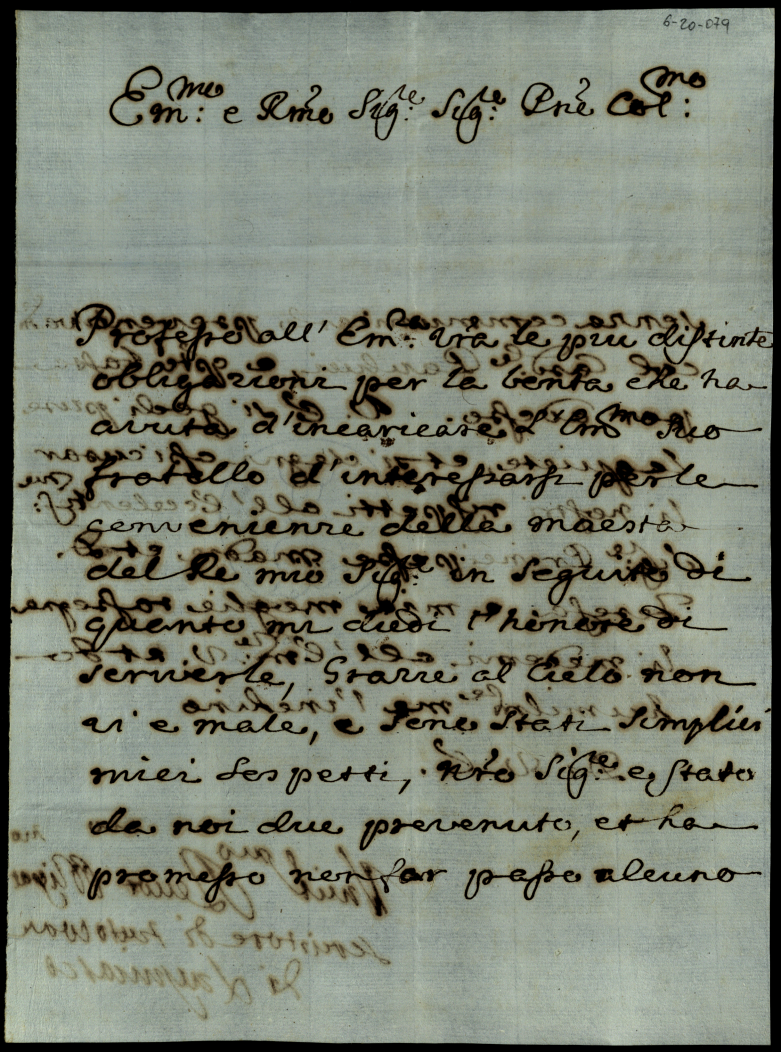 6-20-079
Em:mo e Rmo Sigre Sigre: Pne Col:mo
Professo all' Em:za Vra le piu distinte
obligazioni per la bontà che ha
avuta d'incaricare l'Emo suo
fratello d'interessarsi per le
convenienze della maestà
del Re mio Sigre in seguito di
quanto mi diedi l'honore di
scriverle, Grazie al Cielo non
vi e male, e sono stati simplici
miei sospetti, Nro Sigre e stato
da noi due prevenuto, et ha
promesso non far passo alcuno